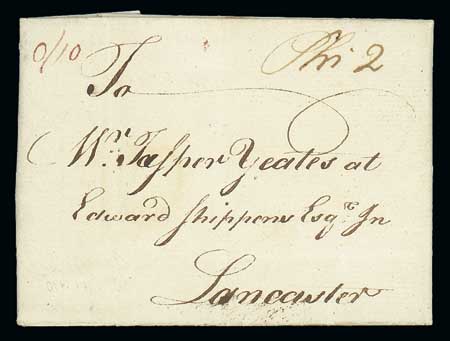 0/10
Phi 2
To
Mr. Jasper Yeates at
Edward Shippens Esqr. In
Lancaster